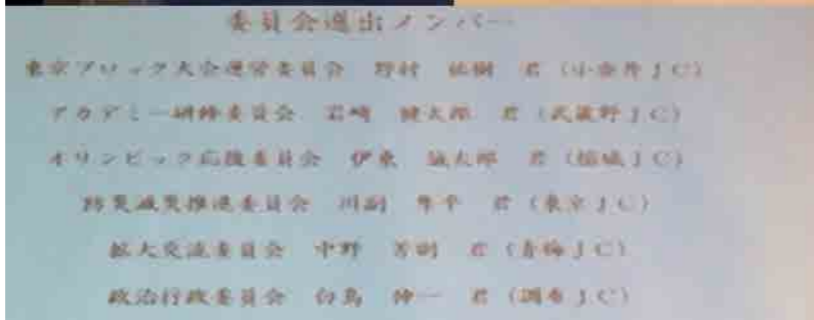 委員会選出メンバー
東京ブロック大会運営委員会 野村 君 (小金井JC)
アカデミー研修委員会 岩崎 健太郎 君 (武蔵野JC)
オリンピック応援委員会 伊東 誠太郎 君 (稲城JC)
防災減災推進委員会 川副 平 君 (東京JC)
拡大交流委員会 中野 君 (青梅JC)
政治行政委員会 白鳥 伸一 君 (調布JC)